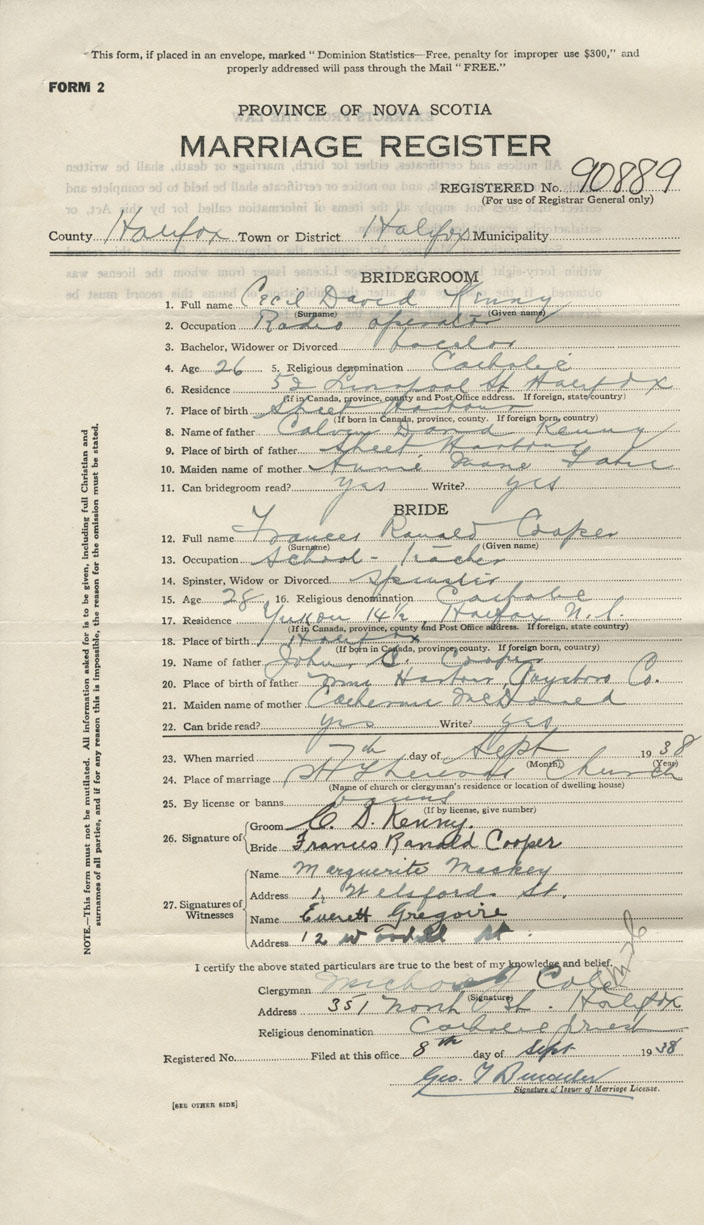 This form, if placed in an envelope, marked "Dominion Statistics—Free, penalty for improper use $300," and
properly addressed will pass through the Mail "FREE."
FORM 2
PROVINCE OF NOVA SCOTIA
MARRIAGE REGISTER
REGISTERED No. 90889
(For use of Registrar General only)
County Halifax Town or District Halifax Municipality
BRIDEGROOM
1. Full name Cecil David Kenny
(Surname) (Given name)
2. Occupation Radio operator
3. Bachelor, Widower or Divorced bacelor
4. Age 26 5. Religious denomination Catholic
6. Residence 52 Liverpool St Halifax
(If in Canada, province, county and Post Office address. If foreign, state country)
7. Place of birth Sheet Harbour
(If born in Canada, province, county. If foreign born, country)
8. Name of father Calvin David Kenny
9. Place of birth of father Sheet Harbour
10. Maiden name of mother Annie
11. Can bridegroom read? yes Write? yes
BRIDE
12. Full name Frances Ranald Cooper
(Surname) (Given name)
13. Occupation School-Teacher
14. Spinster, Widow or Divorced Spinster
15. Age 28 16. Religious denomination Catholic
17. Residence Yukon 14½, Halifax N.S.
(If in Canada, province, county and Post Office address. If foreign, state country)
18. Place of birth Halifax
(If born in Canada, province, county. If foreign born, country)
19. Name of father John Cooper
20. Place of birth of father Harbour, Guysboro Co.
21. Maiden name of mother Catherine McDonald
22. Can bride read? yes Write? yes
23. When married 7th day of Sept 1938
(Month) (Year)
24. Place of marriage St Theresas Church
(Name of church or clergyman's residence or location of dwelling house)
25. By license or banns banns
(If by license, give number)
26. Signature of
Groom C. D. Kenny.
Bride Frances Ranald Cooper
27. Signatures of Witnesses
Name Marguerite Mackey
Address 1 Welsford St.
Name Everett Gregoire
Address 12 St
I certify the above stated particulars are true to the best of my knowledge and belief.
Clergyman Michael Cole
(Signature)
Address 351 North St. Halifax
Religious denomination Catholic priest
Registered No. Filed at this office 8th day of Sept 1938
Geo. T
Signature of Issuer of Marriage License.
[SEE OTHER SIDE]
NOTE.—This form must not be mutilated. All information asked for is to be given, including full Christian and
surnames of all parties, and if for any reason this is impossible, the reason for the omission must be stated.